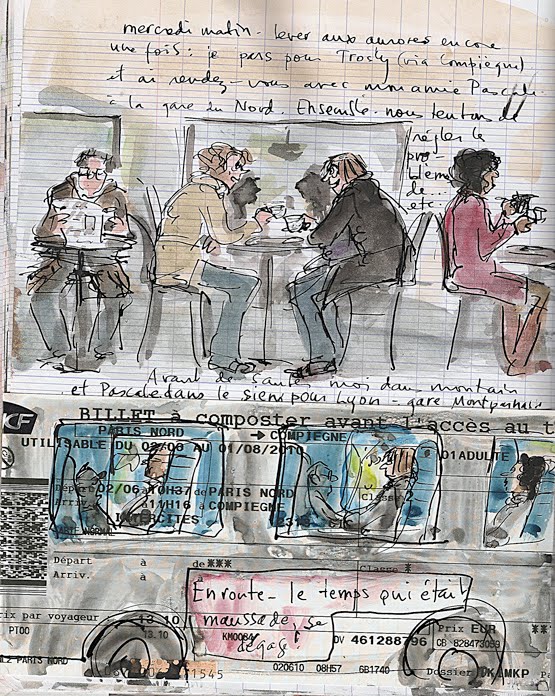 mercredi matin - lever aux aurores encore
une fois : je pars pour Trosly (via Compiègne)
et ai rendez-vous avec mon amie Pascale
à la gare du Nord. Ensemble, nous tentons de
régler le
pro-
blème
de...
etc.
Avant de sauter moi dans mon train
et Pascale dans le sien pour Lyon - gare Montparnasse
CF
BILLET à composter avant l'accès au t
PARIS NORD → COMPIEGNE
UTILISABLE DU 02/06 AU 01/08/2010
01ADULTE
Départ 02/06 à 10H37 de PARIS NORD
Arriv. à 11H16 à COMPIEGNE
Classe
INTERCITES
Départ à de *** Classe *
Arriv. à à
En route - le temps qui était
maussade, se
dégage!
ix par voyageur 13.10 Prix EUR **
PT00 13.10 KM0084 DV 461288796 CB 828473089
020610 08H57 6B1740 Dossier QKLMKP P
LZ PARIS NORD
1545